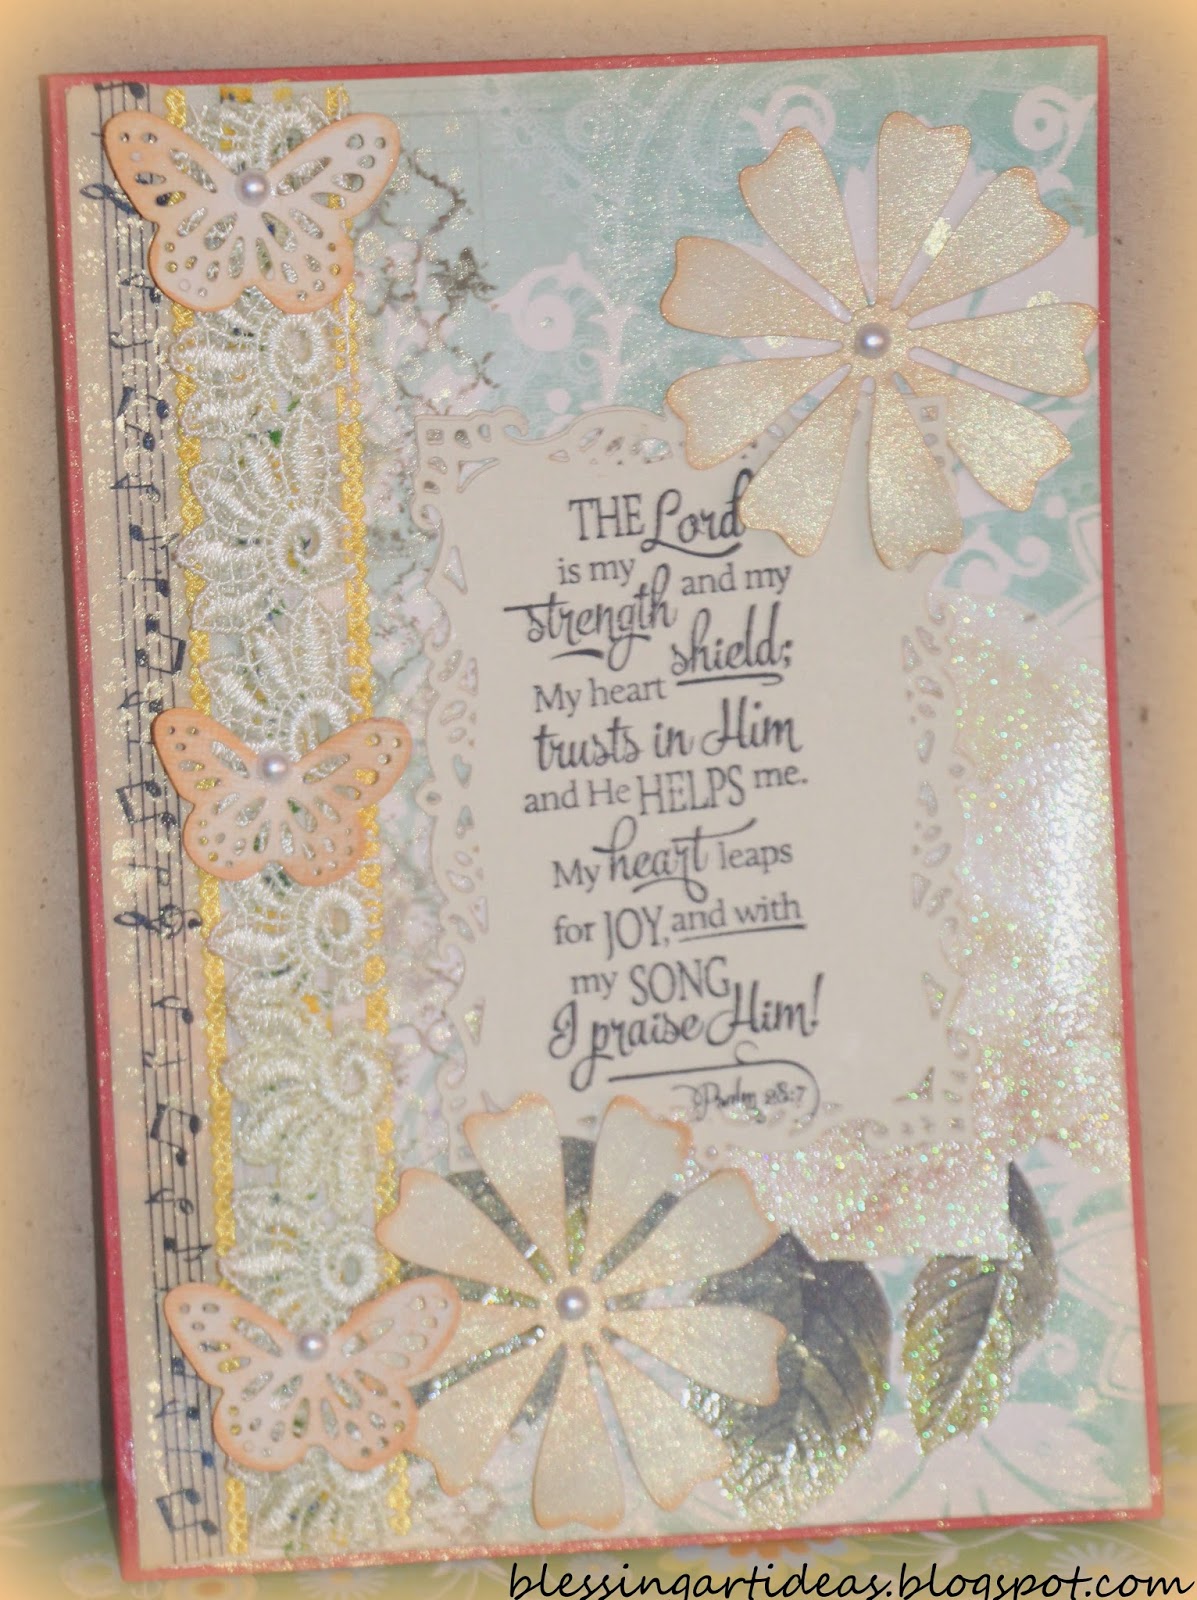 THE Lord
is my
strength and my
shield;
My heart
trusts in Him
and He HELPS me.
My heart leaps
for JOY, and with
my SONG
I praise Him!
Psalm 28:7
blessingartideas.blogspot.com